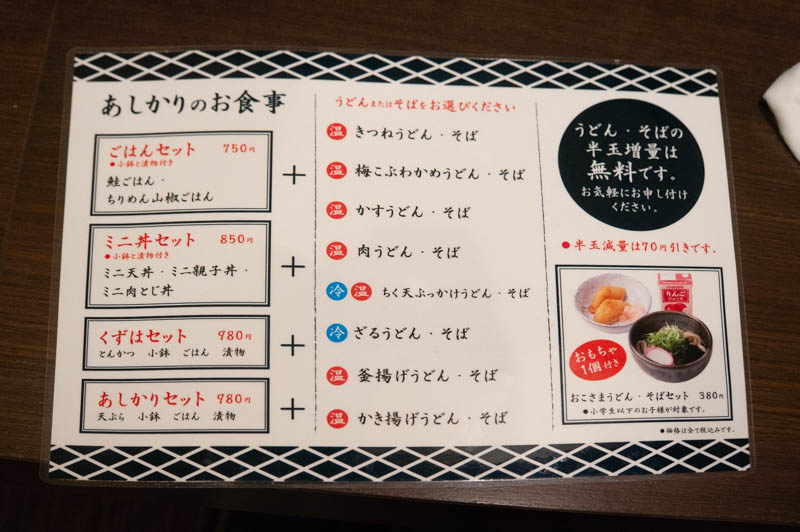 あしかりのお食事
ごはんセット 750円
●小鉢と漬物付き
鮭ごはん・
ちりめん山椒ごはん
+
ミニ丼セット 850円
●小鉢と漬物付き
ミニ天丼・ミニ親子丼・
ミニ肉とじ丼
+
くずはセット 980円
とんかつ 小鉢 ごはん 漬物
+
あしかりセット 980円
天ぷら 小鉢 ごはん 漬物
+
うどんまたはそばをお選びください
温 きつねうどん・そば
温 梅こぶわかめうどん・そば
温 かすうどん・そば
温 肉うどん・そば
冷 温 ちく天ぶっかけうどん・そば
冷 ざるうどん・そば
温 釜揚げうどん・そば
温 かき揚げうどん・そば
うどん・そばの
半玉増量は
無料です。
お気軽にお申し付け
ください。
●半玉減量は70円引きです。
りんご
おもちゃ
1個付き
おこさまうどん・そばセット 380円
●小学生以下のお子様が対象です。
●価格は全て税込みです。